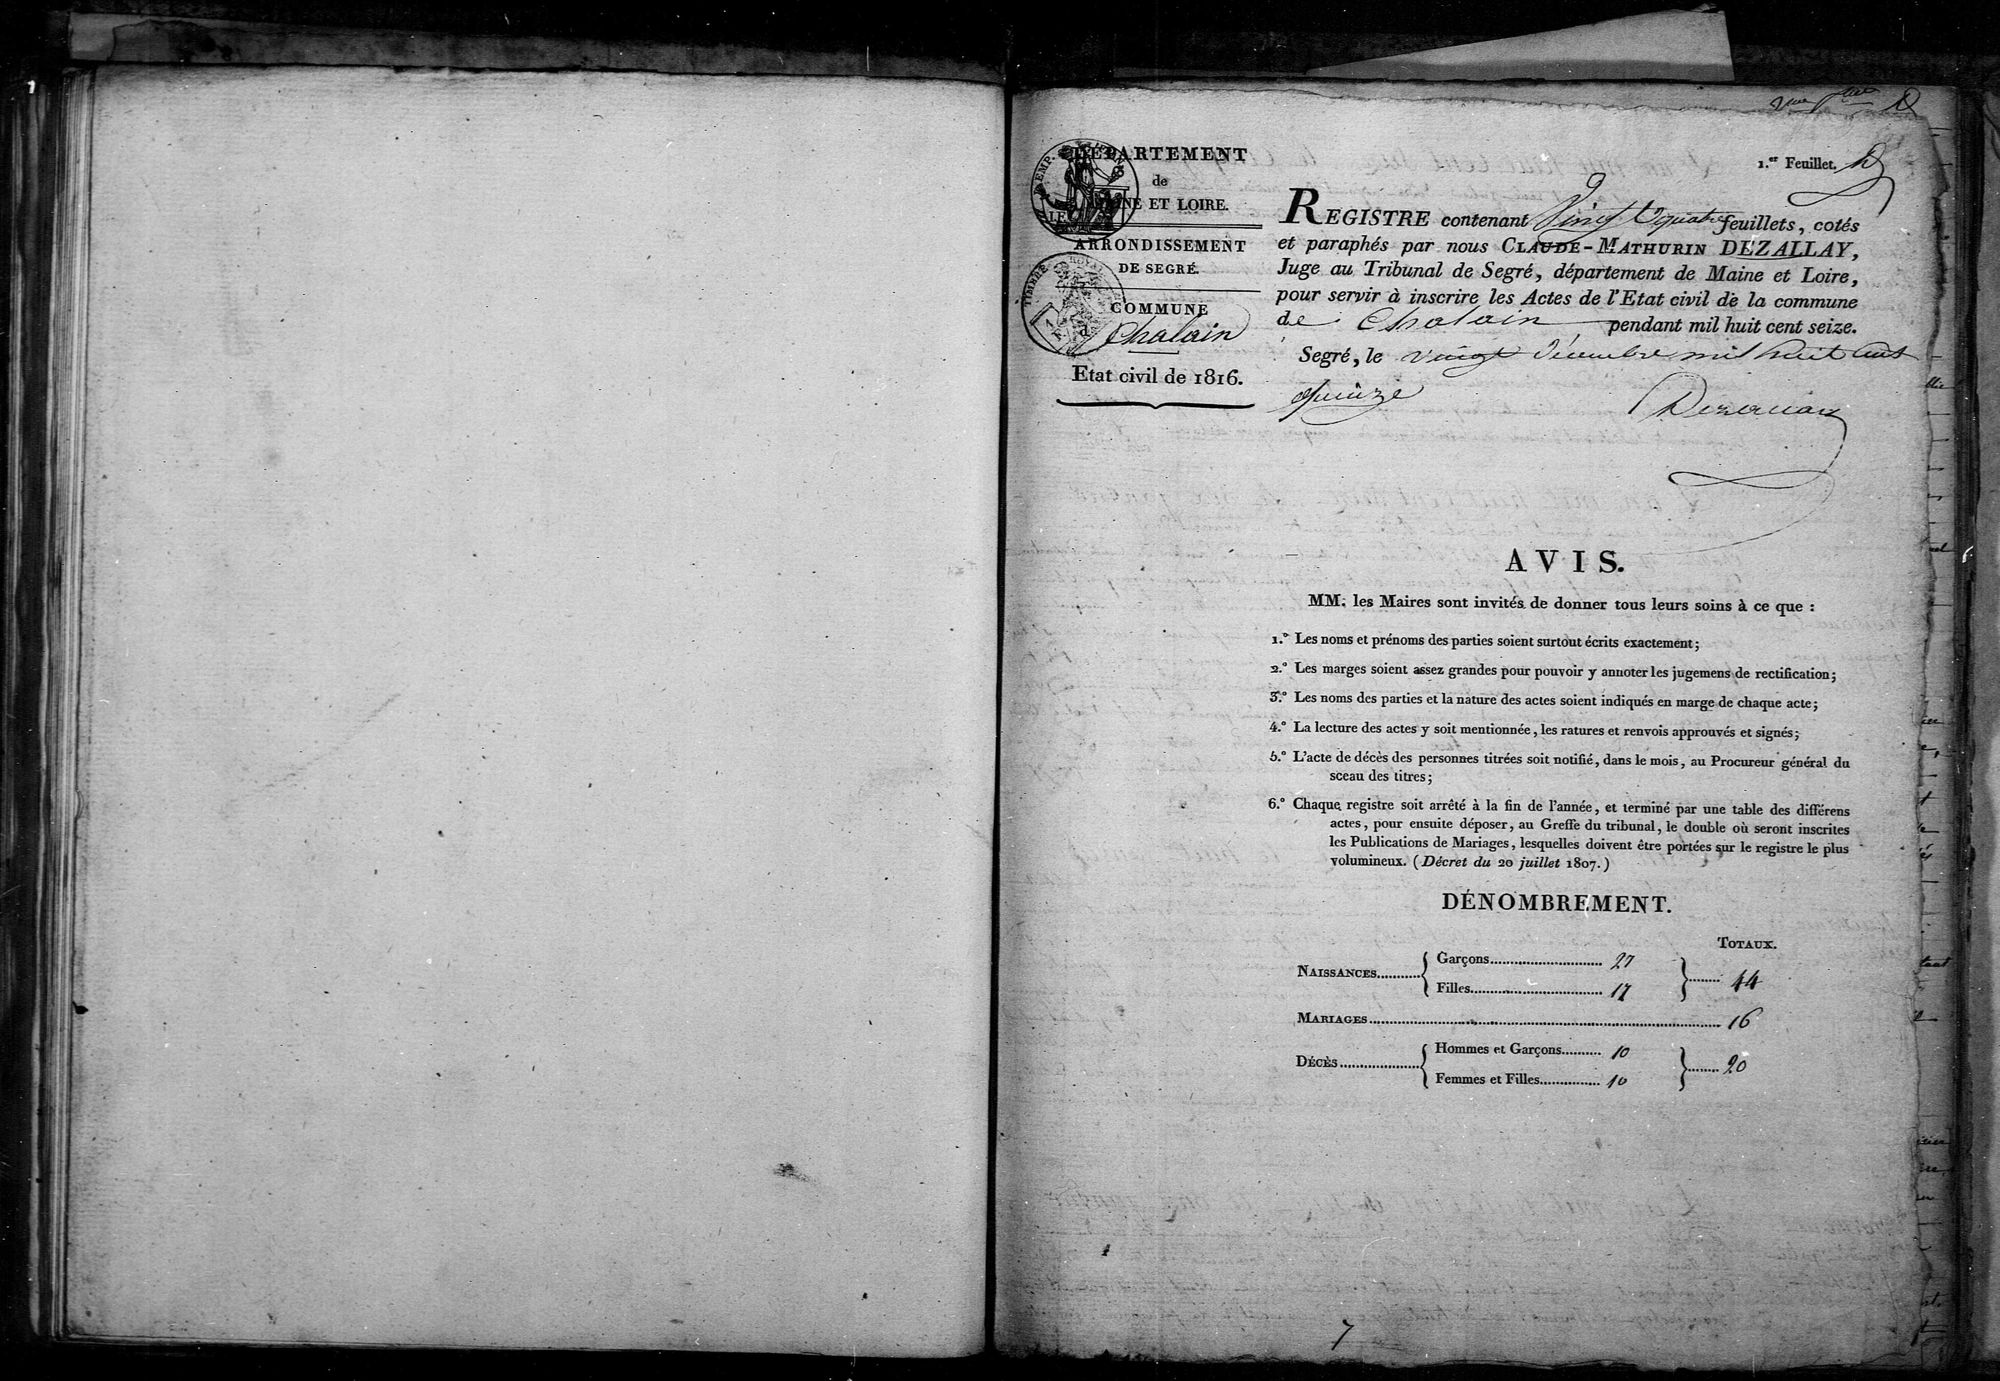 1.er Feuillet.
DÉPARTEMENT
de
MAINE ET LOIRE.
ARRONDISSEMENT
DE SEGRÉ.
COMMUNE
d
Chalain
Etat civil de 1816.
REGISTRE contenant Vingt quatre feuillets, cotés
et paraphés par nous CLAUDE-MATHURIN DEZALLAY,
Juge au Tribunal de Segré, département de Maine et Loire,
pour servir à inscrire les Actes de l'Etat civil de la commune
de Chalain pendant mil huit cent seize.
Segré, le vingt décembre mil huit cent
quinze
AVIS.
MM. les Maires sont invités de donner tous leurs soins à ce que :
1.º Les noms et prénoms des parties soient surtout écrits exactement;
2.º Les marges soient assez grandes pour pouvoir y annoter les jugemens de rectification;
3.º Les noms des parties et la nature des actes soient indiqués en marge de chaque acte;
4.º La lecture des actes y soit mentionnée, les ratures et renvois approuvés et signés;
5.º L'acte de décès des personnes titrées soit notifié, dans le mois, au Procureur général du
sceau des titres;
6.º Chaque registre soit arrêté à la fin de l'année, et terminé par une table des différens
actes, pour ensuite déposer, au Greffe du tribunal, le double où seront inscrites
les Publications de Mariages, lesquelles doivent être portées sur le registre le plus
volumineux. (Décret du 20 juillet 1807.)
DÉNOMBREMENT.
TOTAUX.
NAISSANCES.......... { Garçons.............................. 27
Filles.................................. 17 } ........ 44
MARIAGES.......................................................................................... 16
DÉCÈS.................... { Hommes et Garçons.......... 10
Femmes et Filles............... 10 } ........ 20
7